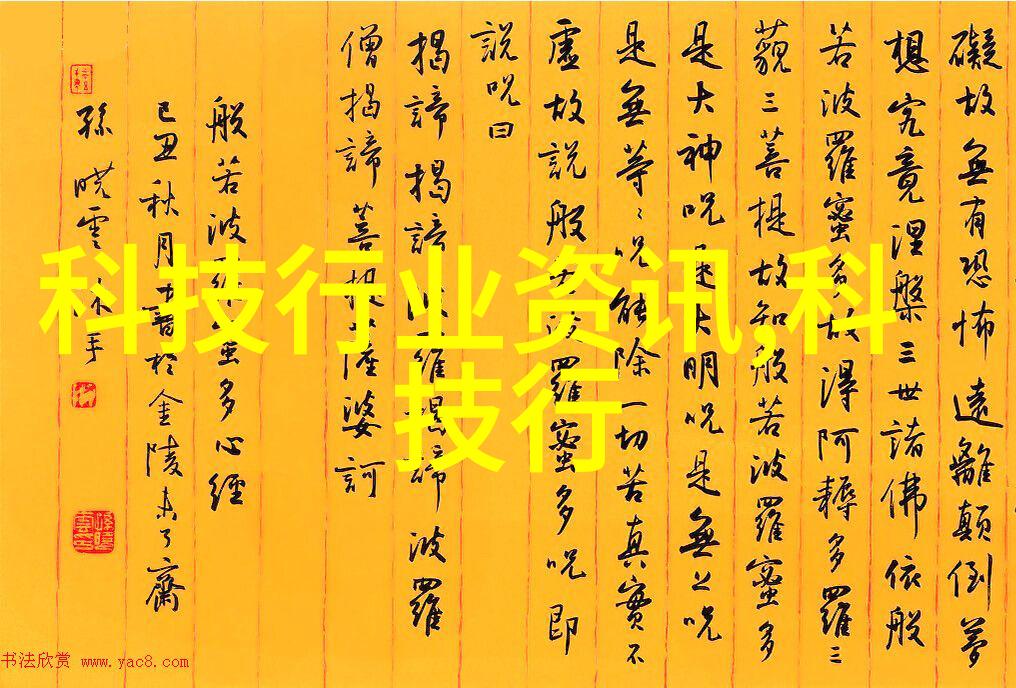 礙故無有恐怖遠離顛倒夢
想究竟涅槃三世諸佛依般
若波羅蜜多故得阿耨多羅三
藐三菩提故知般若波羅蜜多
是大神咒是大明咒是無上咒
是無等〻咒能除一切苦真實不
虛故說般若波羅蜜多咒即
說咒曰
揭諦揭諦波羅揭諦波羅
僧揭諦菩提薩婆訶
般若波羅蜜多心經
己丑秋月書於金陵未了齋
孫曉雲沐手
科技行业资讯,科
技行
书法欣赏 www.yac8.com